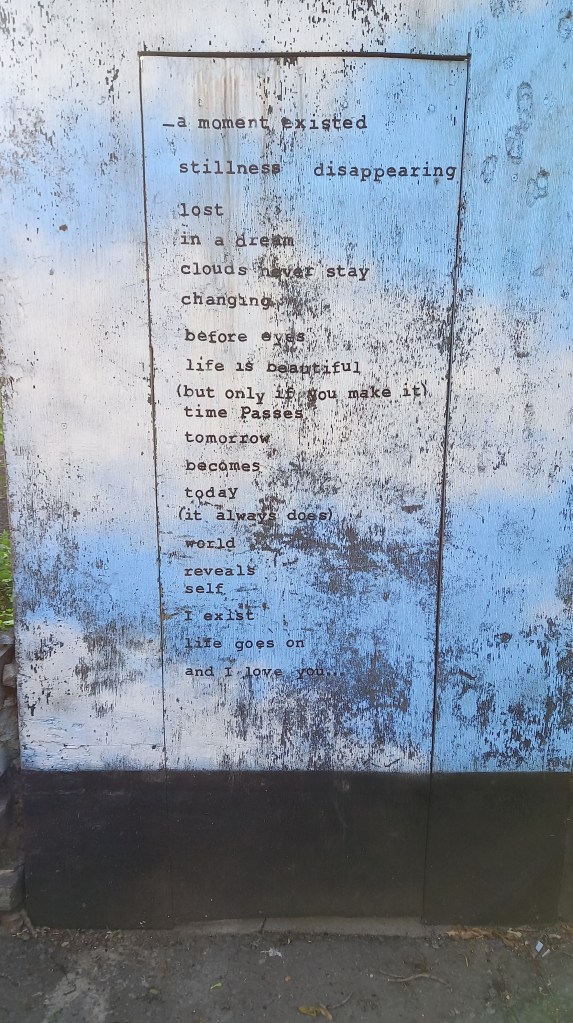 _a moment existed
stillness disappearing
lost
in a dream
clouds never stay
changing
before eyes
life is beautiful
(but only if you make it)
time Passes
tomorrow
becomes
today
(it always does)
world
reveals
self
I exist
life goes on
and I love you...